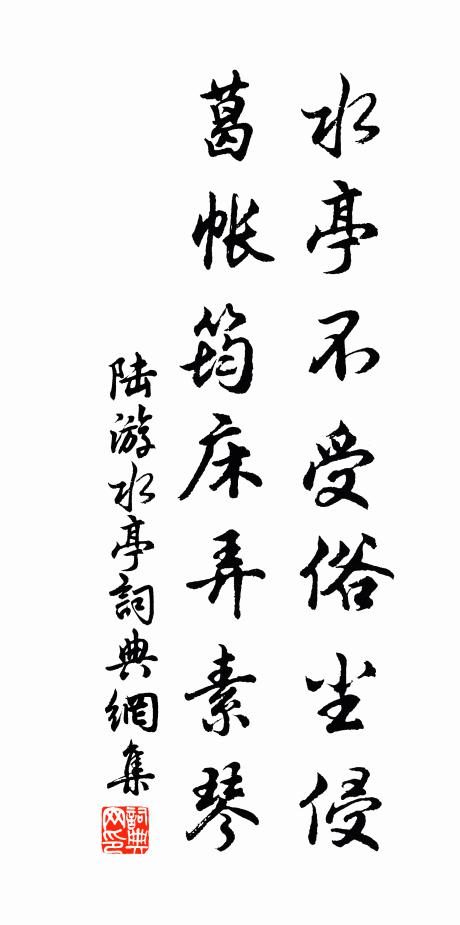 水亭不受俗尘侵
葛帐筠床弄素琴
陆游水亭詞典網集
詞典网印